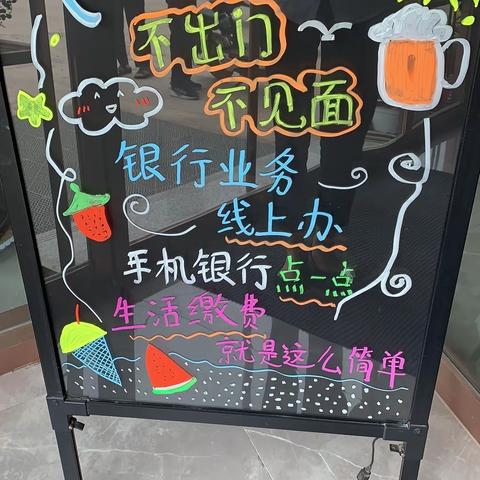 不出门
不见面
银行业务
线上办
手机银行点一点
生活缴费
就是这么简单